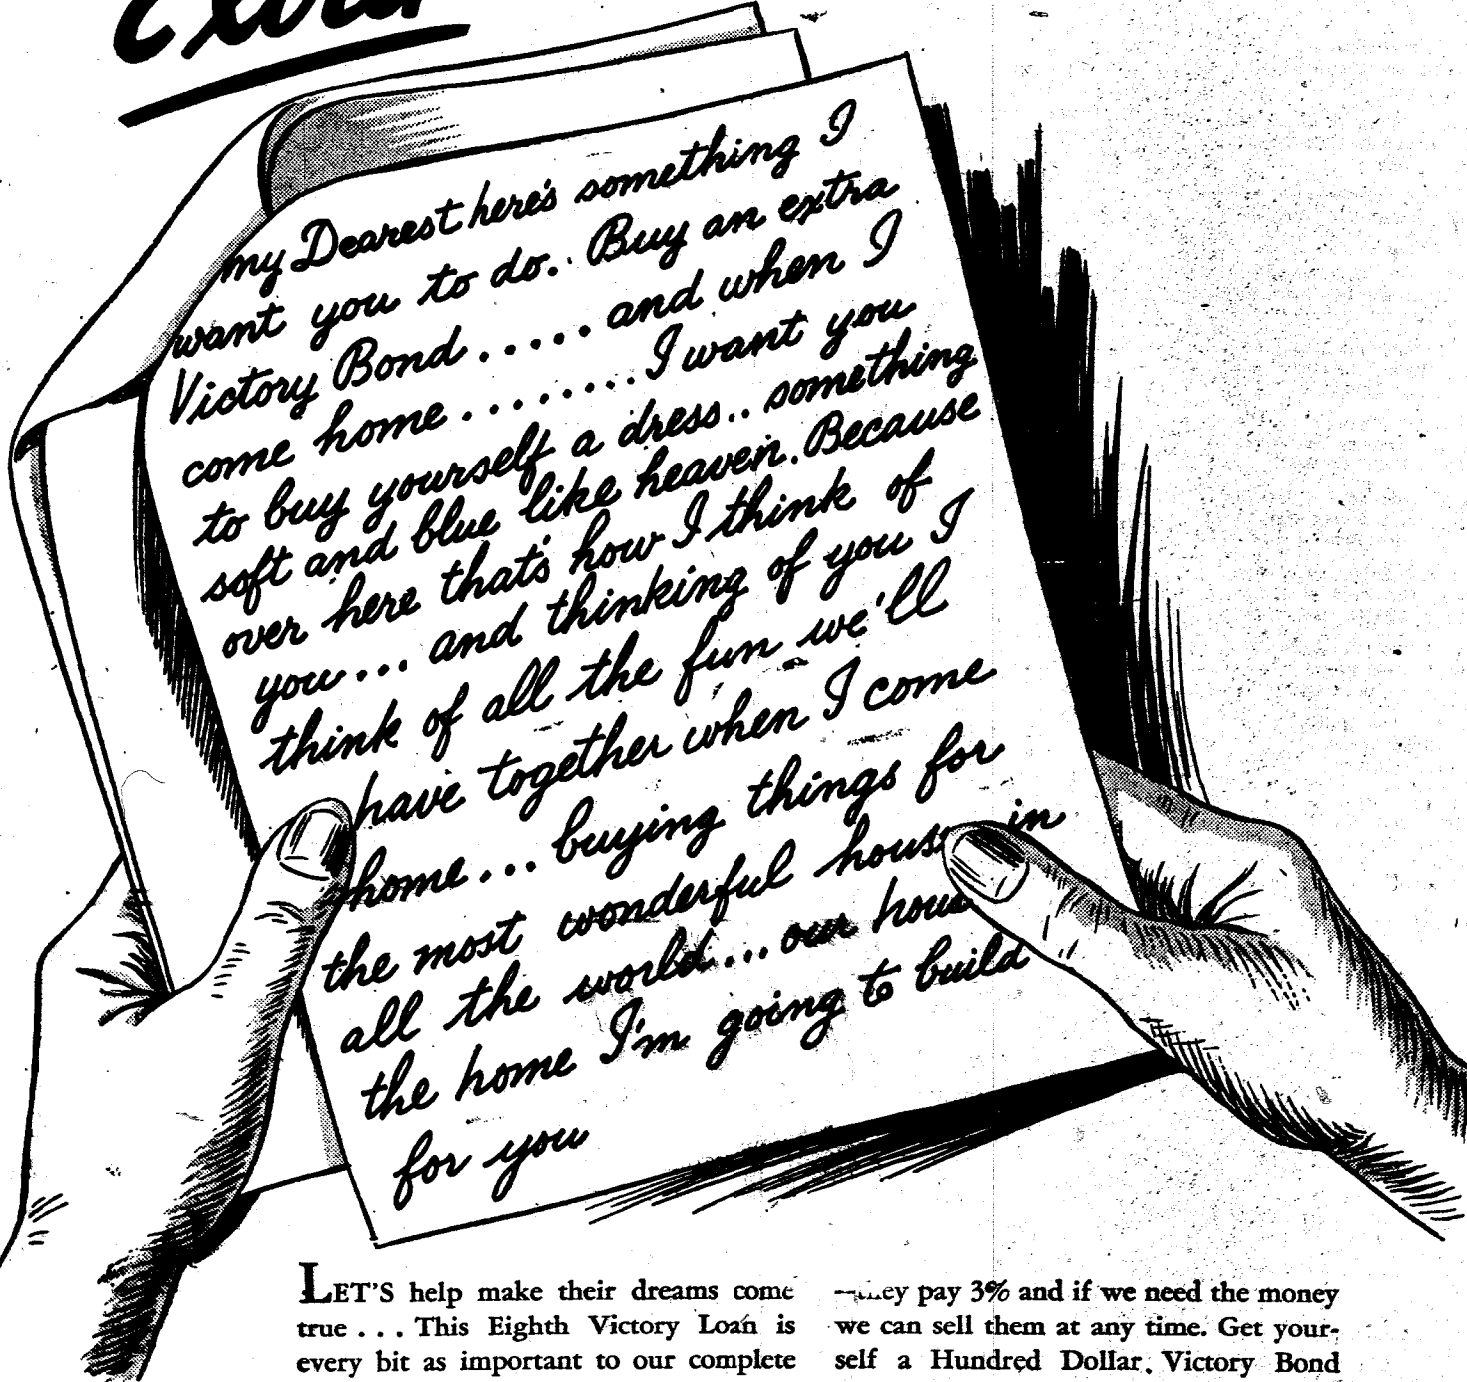 extra
my Dearest here's something I
want you to do. Buy an extra
Victory Bond..... and when I
come home........I want you
to buy yourself a dress.. something
soft and blue like heaven. Because
over here that's how I think of
you... and thinking of you I
think of all the fun we'll
have together when I come
home... buying things for
the most wonderful in
all the world... our
the home I'm going to build
for you
LET'S help make their dreams come
true . . . This Eighth Victory Loan is
every bit as important to our complete
pay 3% and if we need the money
we can sell them at any time. Get your-
self a Hundred Dollar Victory Bond